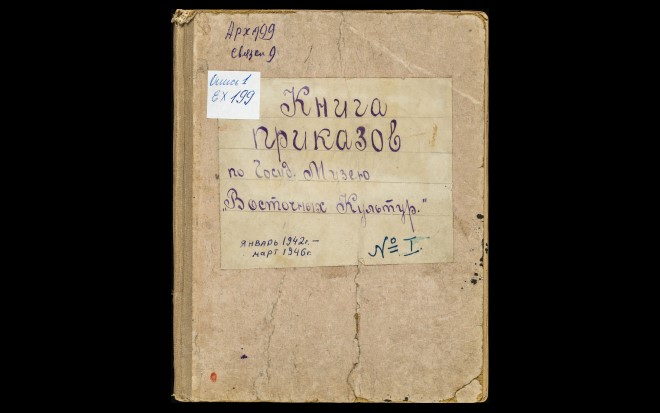 Арх 199
Связка 9
Опись 1
ЕХ 199
Книга
приказов
по Госуд. Музею
"Восточных Культур."
ЯНВАРЬ 1942г. –
МАРТ 1946г.
№ I.